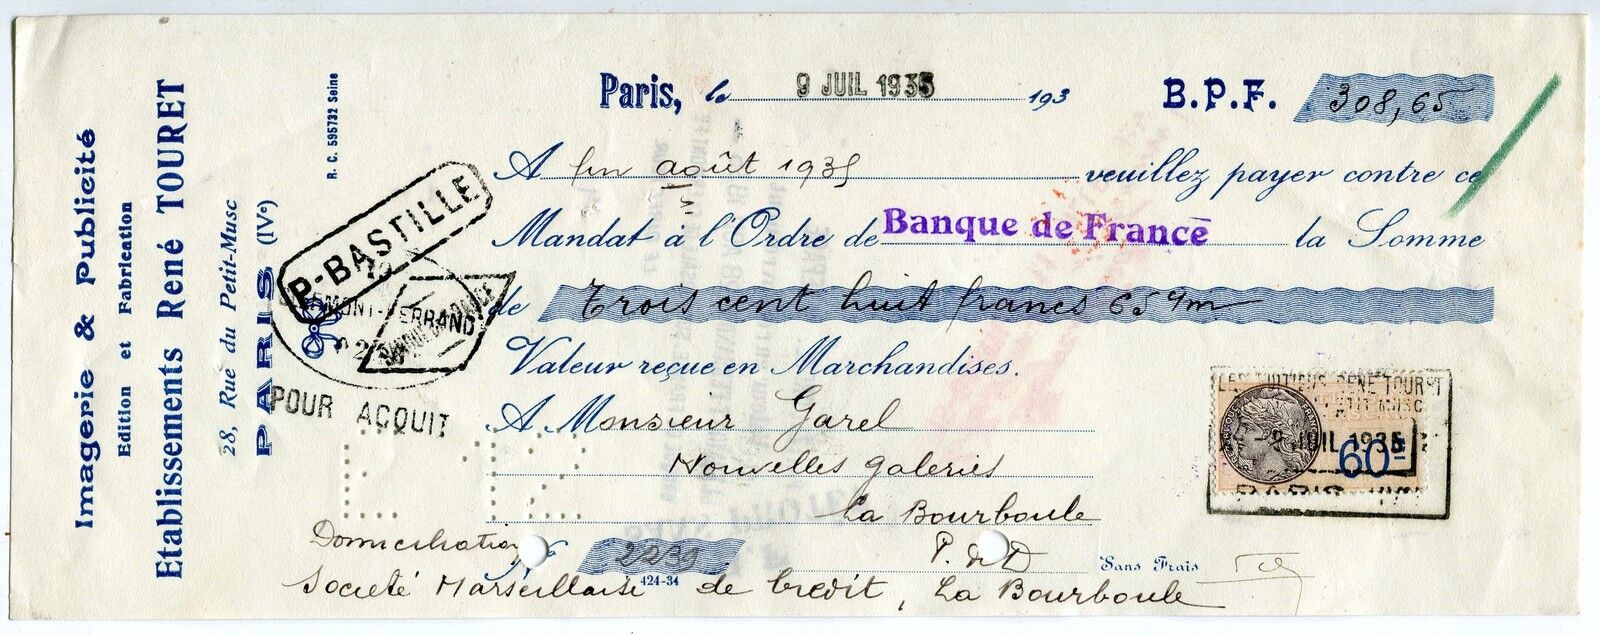 Imagerie & Publicité
Edition et Fabrication
Etablissements René TOURET
28, Rue du Petit-Musc
PARIS (IVe)
R. C. 595732 Seine
Paris, le 9 JUIL 1935 193
B.P.F. 308,65
A fin août 1935 veuillez payer contre ce
Mandat à l'Ordre de Banque de France la Somme
de Trois cent huit francs 65 cm
Valeur reçue en Marchandises.
A Monsieur Garel
Nouvelles galeries
La Bourboule
P. de D
Sans Frais
Domiciliation
No 2239
424-34
Société Marseillaise de Credit, La Bourboule
P-BASTILLE
POUR ACQUIT
RENE TOURET
PETIT MUSC
-9 JUIL 1935
60c
PARIS